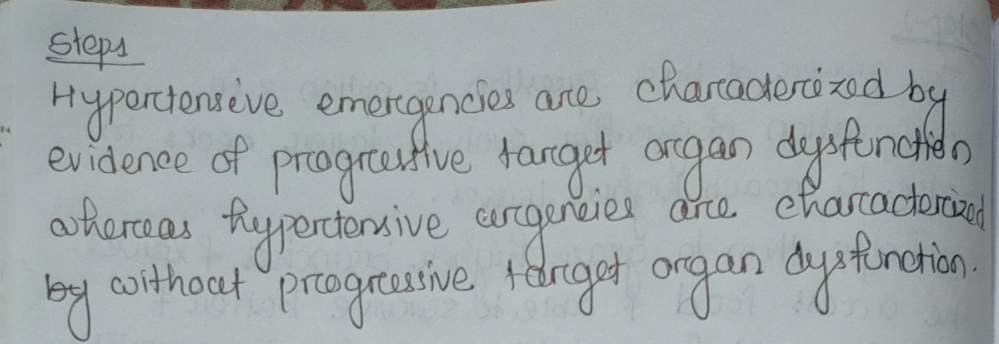 Steps
Hypertensive emergencies are characterized by
evidence of progressive target organ dysfunction
whereas hypertensive urgencies are characterized
by without progressive target organ dysfunction.